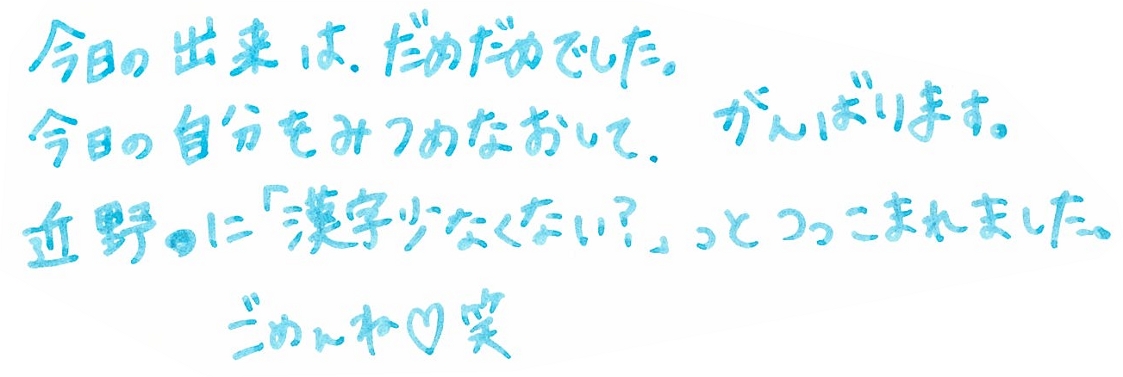 今日の出来は、だめだめでした。
今日の自分をみつめなおして、
がんばります。
近野に「漢字少なくない?」っとつっこまれました。
ごめんね♡笑